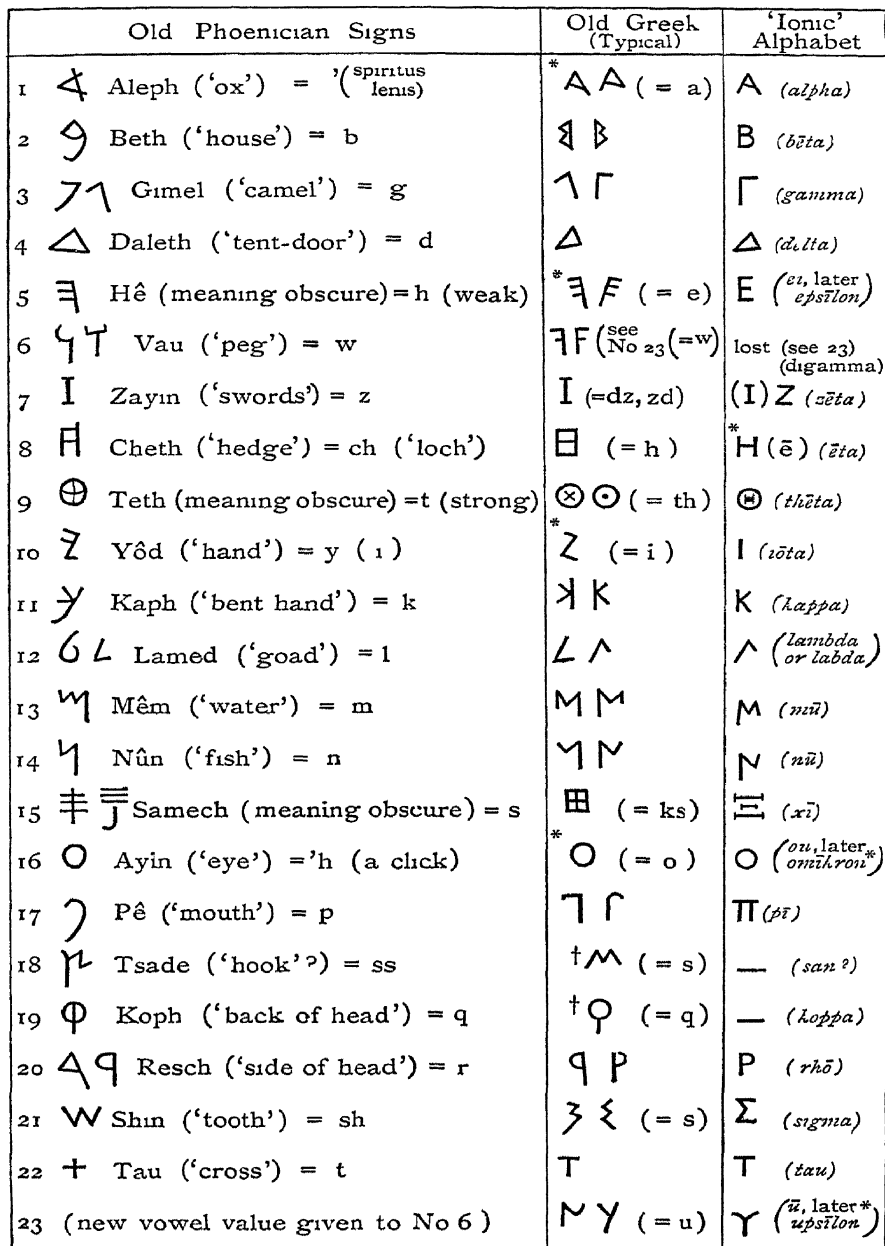 Old Phoenician Signs | Old Greek (Typical) | 'Ionic' Alphabet
1 𐤀 Aleph ('ox') = ʼ (spiritus lenis) | * A A (= a) | A (alpha)
2 𐤁 Beth ('house') = b | B B | B (bēta)
3 𐤂 Gimel ('camel') = g | 𐤂 Γ | Γ (gamma)
4 Δ Daleth ('tent-door') = d | Δ | Δ (delta)
5 𐤄 Hê (meaning obscure) = h (weak) | * 𐤄 E (= e) | E (ei, later epsīlon)
6 𐤅 Vau ('peg') = w | F F (see No 23 (=w) | lost (see 23) (digamma)
7 I Zayin ('swords') = z | I (=dz, zd) | (I) Z (zēta)
8 𐤇 Cheth ('hedge') = ch ('loch') | 日 (= h) | * H (ē) (ēta)
9 ⊕ Teth (meaning obscure) =t (strong) | ⊗ ⊙ (= th) | Θ (thēta)
10 𐤉 Yôd ('hand') = y (i) | * Z (= i) | I (iōta)
11 𐤊 Kaph ('bent hand') = k | K K | K (kappa)
12 𐤋 L Lamed ('goad') = l | L Λ | Λ (lambda or labda)
13 𐤌 Mêm ('water') = m | M M | M (mū)
14 𐤍 Nûn ('fish') = n | N N | N (nū)
15 𐤎 Samech (meaning obscure) = s | 田 (= ks) | Ξ (xī)
16 O Ayin ('eye') ='h (a click) | * O (= o) | O (ou, later omīkron*)
17 𐤐 Pê ('mouth') = p | 𐤐 Γ | Π (pī)
18 𐤑 Tsade ('hook'?) = ss | † M (= s) | — (san?)
19 Φ Koph ('back of head') = q | † Ϙ (= q) | — (koppa)
20 𐤓 Resch ('side of head') = r | P P | P (rhō)
21 W Shin ('tooth') = sh | Σ Σ (= s) | Σ (sigma)
22 + Tau ('cross') = t | T | T (tau)
23 (new vowel value given to No 6) | V Y (= u) | Υ (ū, later* upsīlon)